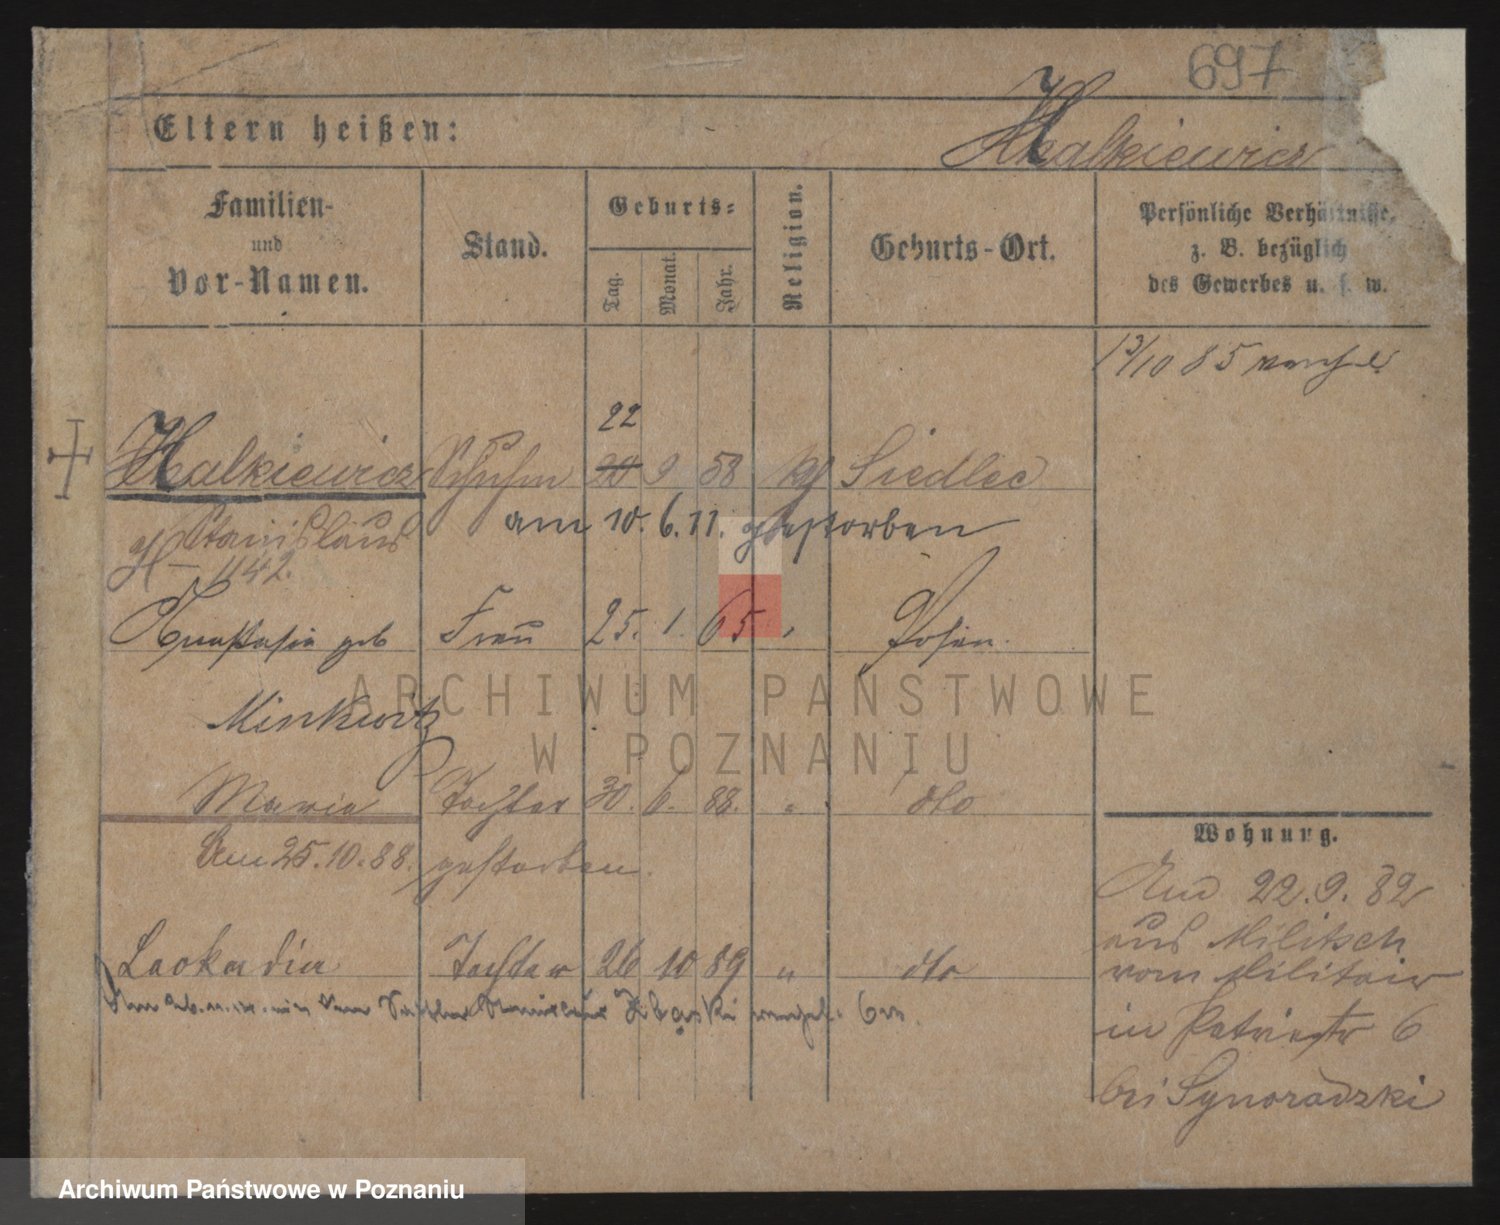 697
Eltern heißen:
Halkiewicz
Familien-
und
Vor-Namen.
Stand.
Geburts-
Tag.
Monat.
Jahr.
Religion.
Geburts-Ort.
Persönliche Verhältnisse,
z. B. bezüglich
des Gewerbes u. s. w.
13/10 85 verehel.
22
Halkiewicz Schuhm 20 9 58 Siedlec
Stanislaus
am 10.6.11. gestorben
H - 1142.
Anastasia geb Frau 25. 1. 65. " Posen.
Minkwitz
Maria Tochter 30. 6. 88. " dto
Am 25.10.88. gestorben.
Leokadia Tochter 26 10 89 " dto
Wohnung.
Am 22.9.82
aus Militsch
vom Militair
in Petristr 6
bei Synoradzki
ARCHIWUM PAŃSTWOWE
W POZNANIU
Archiwum Państwowe w Poznaniu